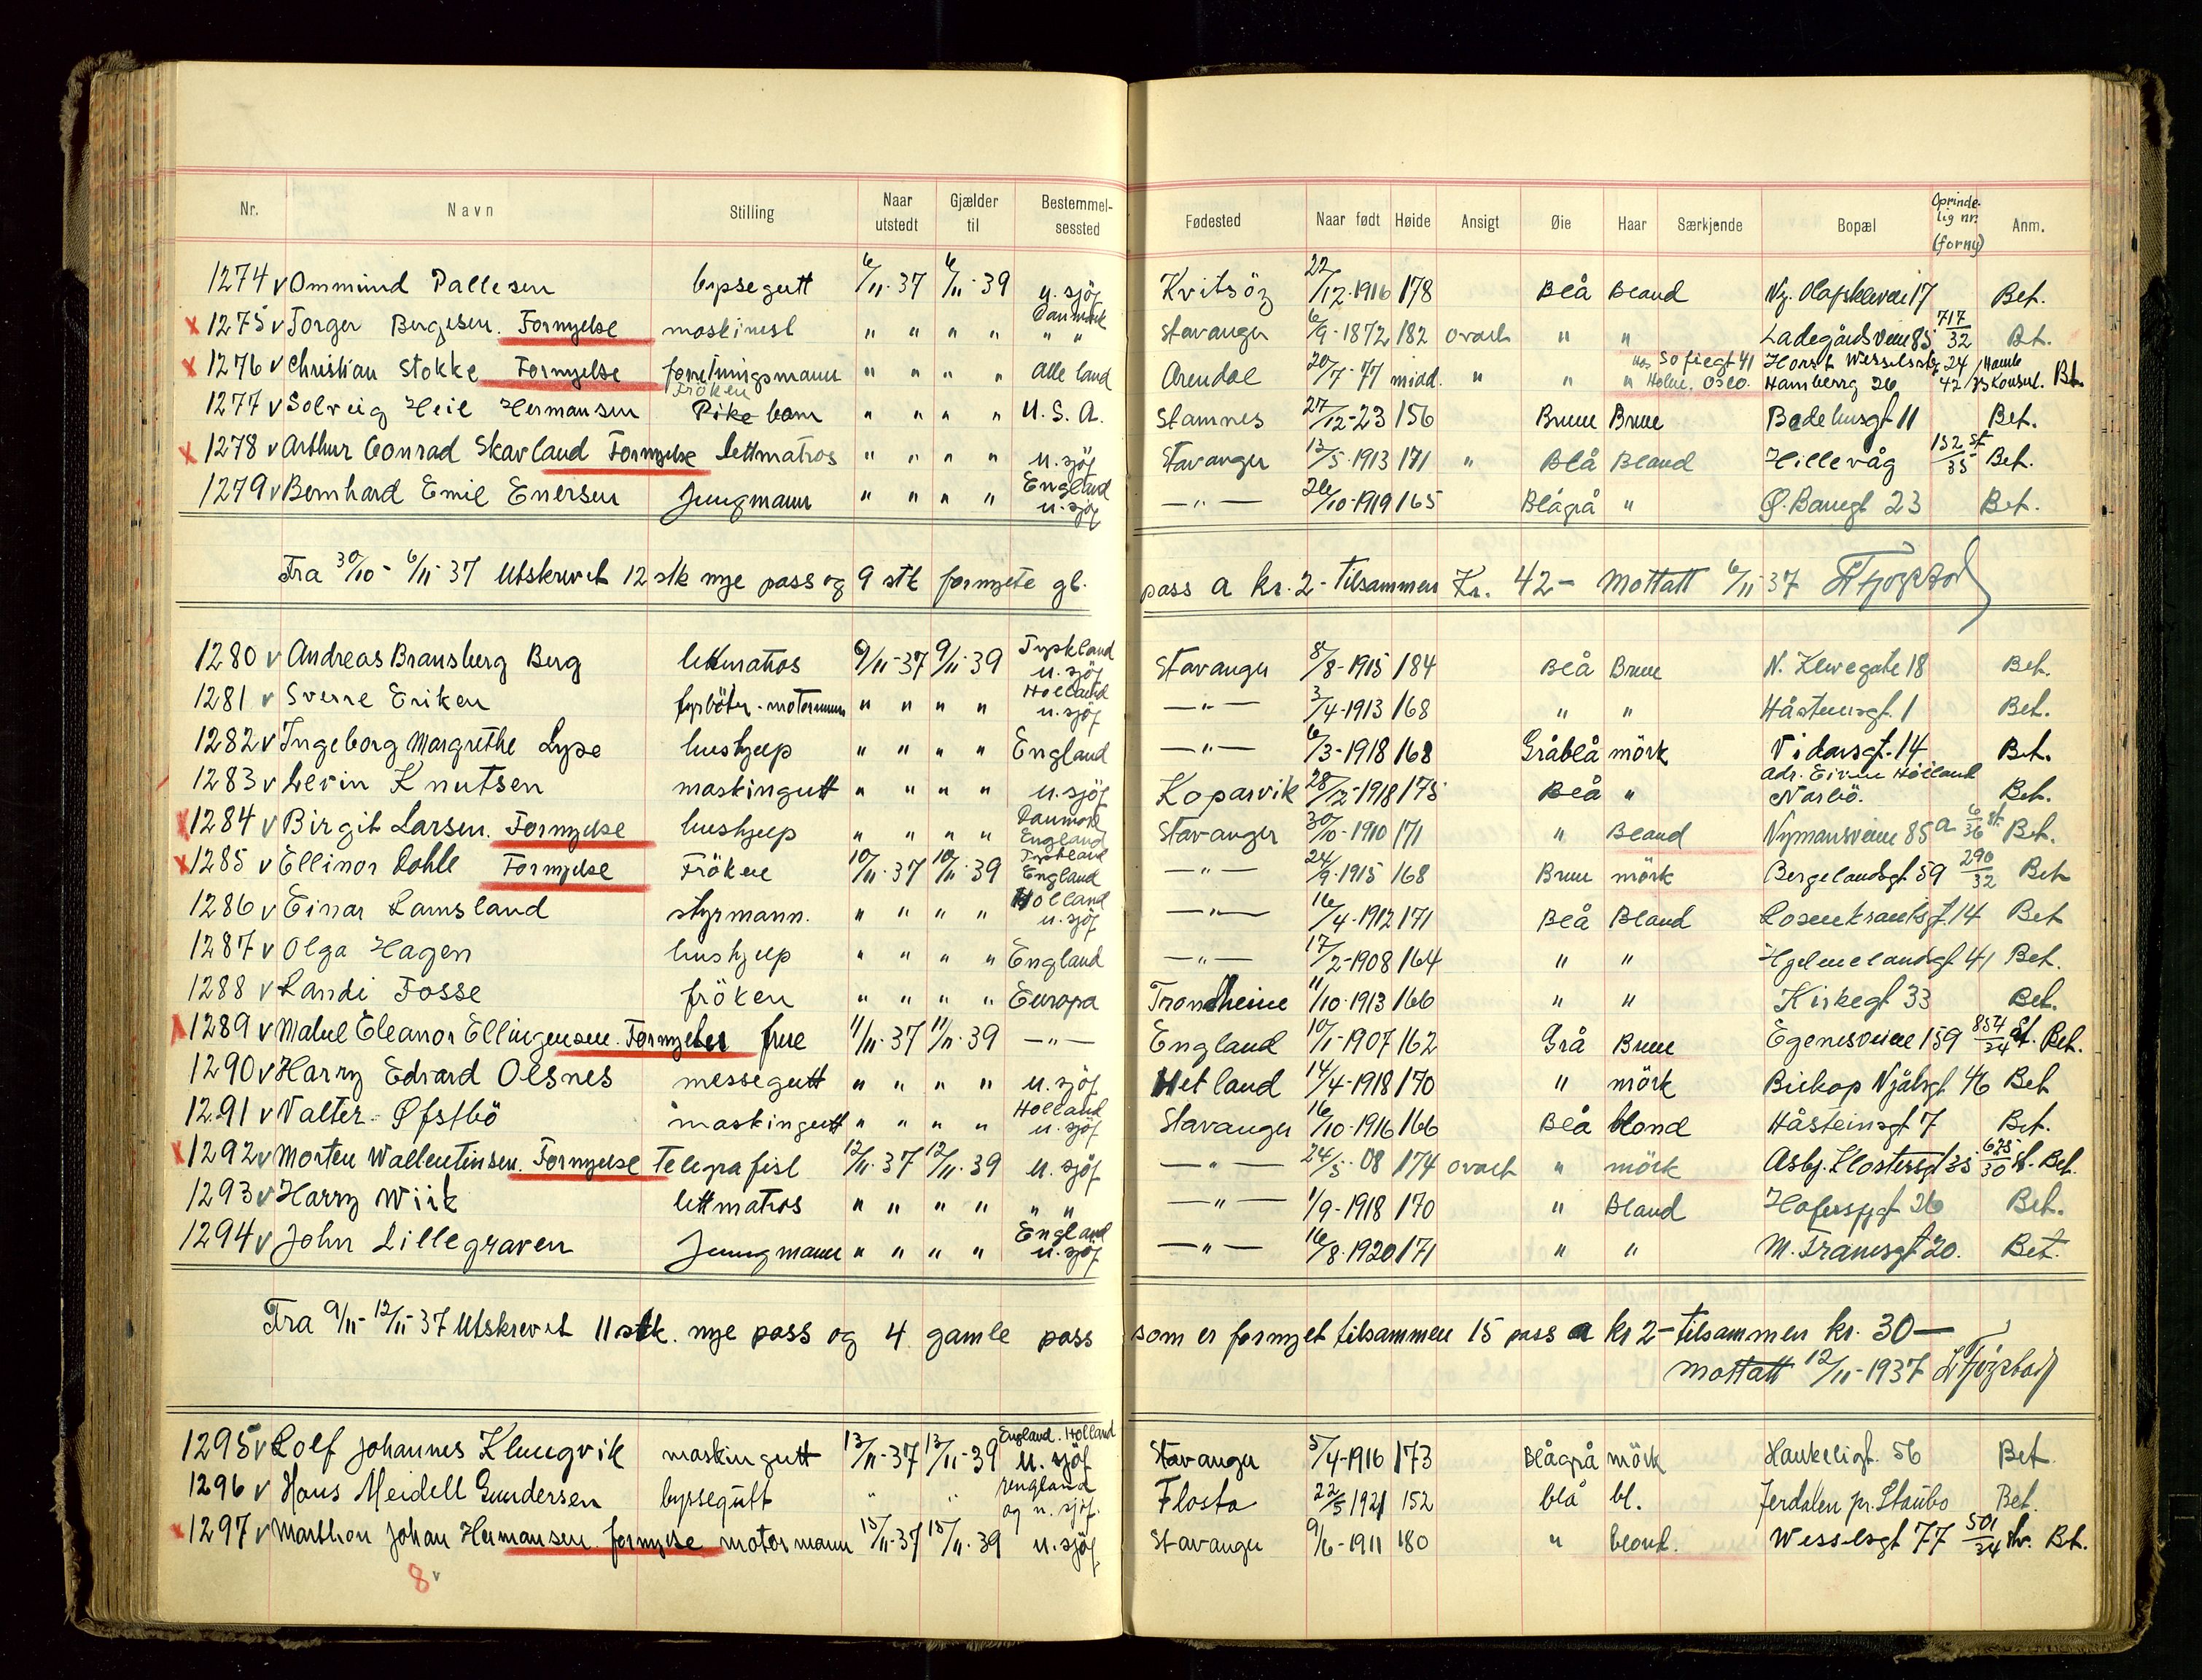 Nr. Navn Stilling Naar utstedt Gjælder til Bestemmelsessted Fødested Naar født Høide Ansigt Øie Haar Særkjende Bopæl Oprindelig nr. (forny) Anm.
1274 v Ommund Pallesen byssegutt 6/11-37 6/11-39 u. sjöf Kvitsöy 22/12-1916 178 Blå Bland Ny. Olafskleven 17 Bet.
x 1275 v Torger Bergesen. Fornyelse maskinist " " " " Danmark " " Stavanger 6/9-1872 182 ovalt " " Ladegårdsveien 85 717/32 Bt.
x 1276 v Christian Stokke Fornyelse forretningsmann " " " " Alle land Arendal 20/7-77 midd. " " " Sofiegt 41 Oslo. 24/42 Bt.
1277 v Solveig Heil Hermansen Fröken Pike barn " " " " U.S.A. Stamnes 27/12-23 156 Brune Brun Bedehusgt 11 Bet.
x 1278 v Arthur Conrad Skavland Fornyelse lettmatros " " " " u. sjöf Stavanger 13/5-1913 171 " Blå Bland Hillevåg 152/35 st Bet.
1279 v Bernhard Emil Enersen Jungmann " " " " England u. sjöf —"— 26/10-1919 165 Blågrå " Ø. Banegt 23 Bet.
Fra 30/10 - 6/11-37 Utskrevet 12 stk nye pass og 9 stk fornyete gl. pass a kr. 2- tilsammen Kr. 42- Mottatt 6/11 37
1280 v Andreas Bransberg Berg lettmatros 9/11-37 9/11-39 Tyskland u. sjöf Stavanger 8/8-1915 184 Blå Brun N. Klevegate 18 Bet.
1281 v Sverre Eriksen fyrböter-motormann " " " " Holland u. sjöf —"— 3/4-1913 168 " " Håsteinsgt. 1 Bet.
1282 v Ingeborg Margrethe Lyse hushjelp " " " " England —"— 6/3-1918 168 Gråblå mörk Vidarsgt. 14 Bet.
1283 v Levin Knutsen maskingutt " " " " u. sjöf Koparvik 28/12-1918 175 Blå " adr. Eivin Höiland Narbö. Bet.
x 1284 v Birgit Larsen. Fornyelse hushjelp " " " " Danmark England Stavanger 30/10-1910 171 " Bland Nymansveien 85 a 6/36 st. Bet.
x 1285 v Ellinor Dahle Fornyelse Fröken 10/11-37 10/11-39 Tyskland England —"— 24/9-1915 168 Brun mörk Bergelandsgt 59 290/32 Bet
1286 v Einar Lamsland styrmann. " " " " Holland u. sjöf —"— 16/4-1912 171 Blå Bland Rosenkrantsgt. 14 Bet
1287 v Olga Hagen hushjelp " " " " England —"— 17/2-1908 164 " " Hjelmelandsgt 41 Bet.
1288 v Randi Fosse fröken " " " " Europa Trondheim 11/10-1913 166 " " Kirkegt 33 Bet.
x 1289 v Mabel Eleanor Ellingensen. Fornyelse frue 11/11-37 11/11-39 —"— England 10/1-1907 162 Grå Brun Egenesveien 159 854/34 st. Bet.
1290 v Harry Edvard Olsnes messegutt " " " " u. sjöf Hetland 14/4-1918 170 " mörk Biskop Njålsgt 46 Bet
1291 v Valter Øfstbö maskingutt " " " " Holland u. sjöf Stavanger 16/10-1916 166 Blå blond Håsteinsgt 7 Bet.
x 1292 v Morten Wallentinsen. Fornyelse Telegrafist 12/11-37 12/11-39 u. sjöf —"— 24/5-08 174 ovalt " mörk Asbj. Klostersgt 35 675/30 st. Bet.
1293 v Harry Wiik lettmatros " " " " " " —"— 1/9-1918 170 " Bland Hafrsfjgt 26 Bet.
1294 v John Lillegraven Jungmann " " " " England u. sjöf —"— 16/8-1920 171 " " M. Transgt 20. Bet.
Fra 9/11-12/11-37 Utskrevet 11 stk. nye pass og 4 gamle pass som er fornyet tilsammen 15 pass a kr 2- tilsammen kr. 30—
Mottatt 12/11-1937
1295 v Rolf Johannes Klungvik maskingutt 13/11-37 13/11-39 England. Holland u. sjöf Stavanger 5/4-1916 173 Blågrå mörk Haukeligt. 56 Bet
1296 v Hans Meidell Gundersen byssegutt " " England og u. sjöf. Flosta 22/5 1921 152 blå bl. Jerdalen pr. Staubo Bet.
x 1297 v Marthon Johan Hermansen. fornyelse motormann 15/11-37 15/11-39 u. sjöf Stavanger 9/6-1911 180 " blond. Wesselsgt 77 501/34 Bet.
8 v